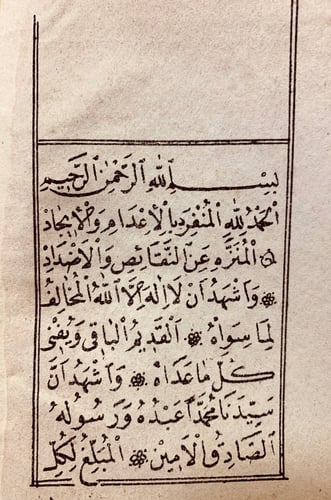 بِسْـــمِ ٱللَّهِ ٱلرَّحْمٰنِ ٱلرَّحِيمِ
اَلْحَمْدُ لِلّٰهِ ٱلْمُنْفَرِدِ بِالْاِعْدَامِ وَالْاِيجَادِ
۞ الْمُنَزَّهِ عَنِ النَّقَائِصِ وَالْاَضْدَادِ
۞ وَاَشْهَدُ اَنْ لَا اِلٰهَ اِلَّا اللّٰهُ الْمُخَالِفُ
لِمَا سِوَاهُ ۞ اَلْقَدِيمُ الْبَاقِي وَيَفْنٰى
كُلُّ مَا عَدَاهُ ۞ وَاَشْهَدُ اَنَّ
سَيِّدَنَا مُحَمَّدًا عَبْدُهُ وَرَسُولُهُ
الصَّادِقُ الْاَمِينُ ۞ الْمُبَلِّغُ لِكُلِّ